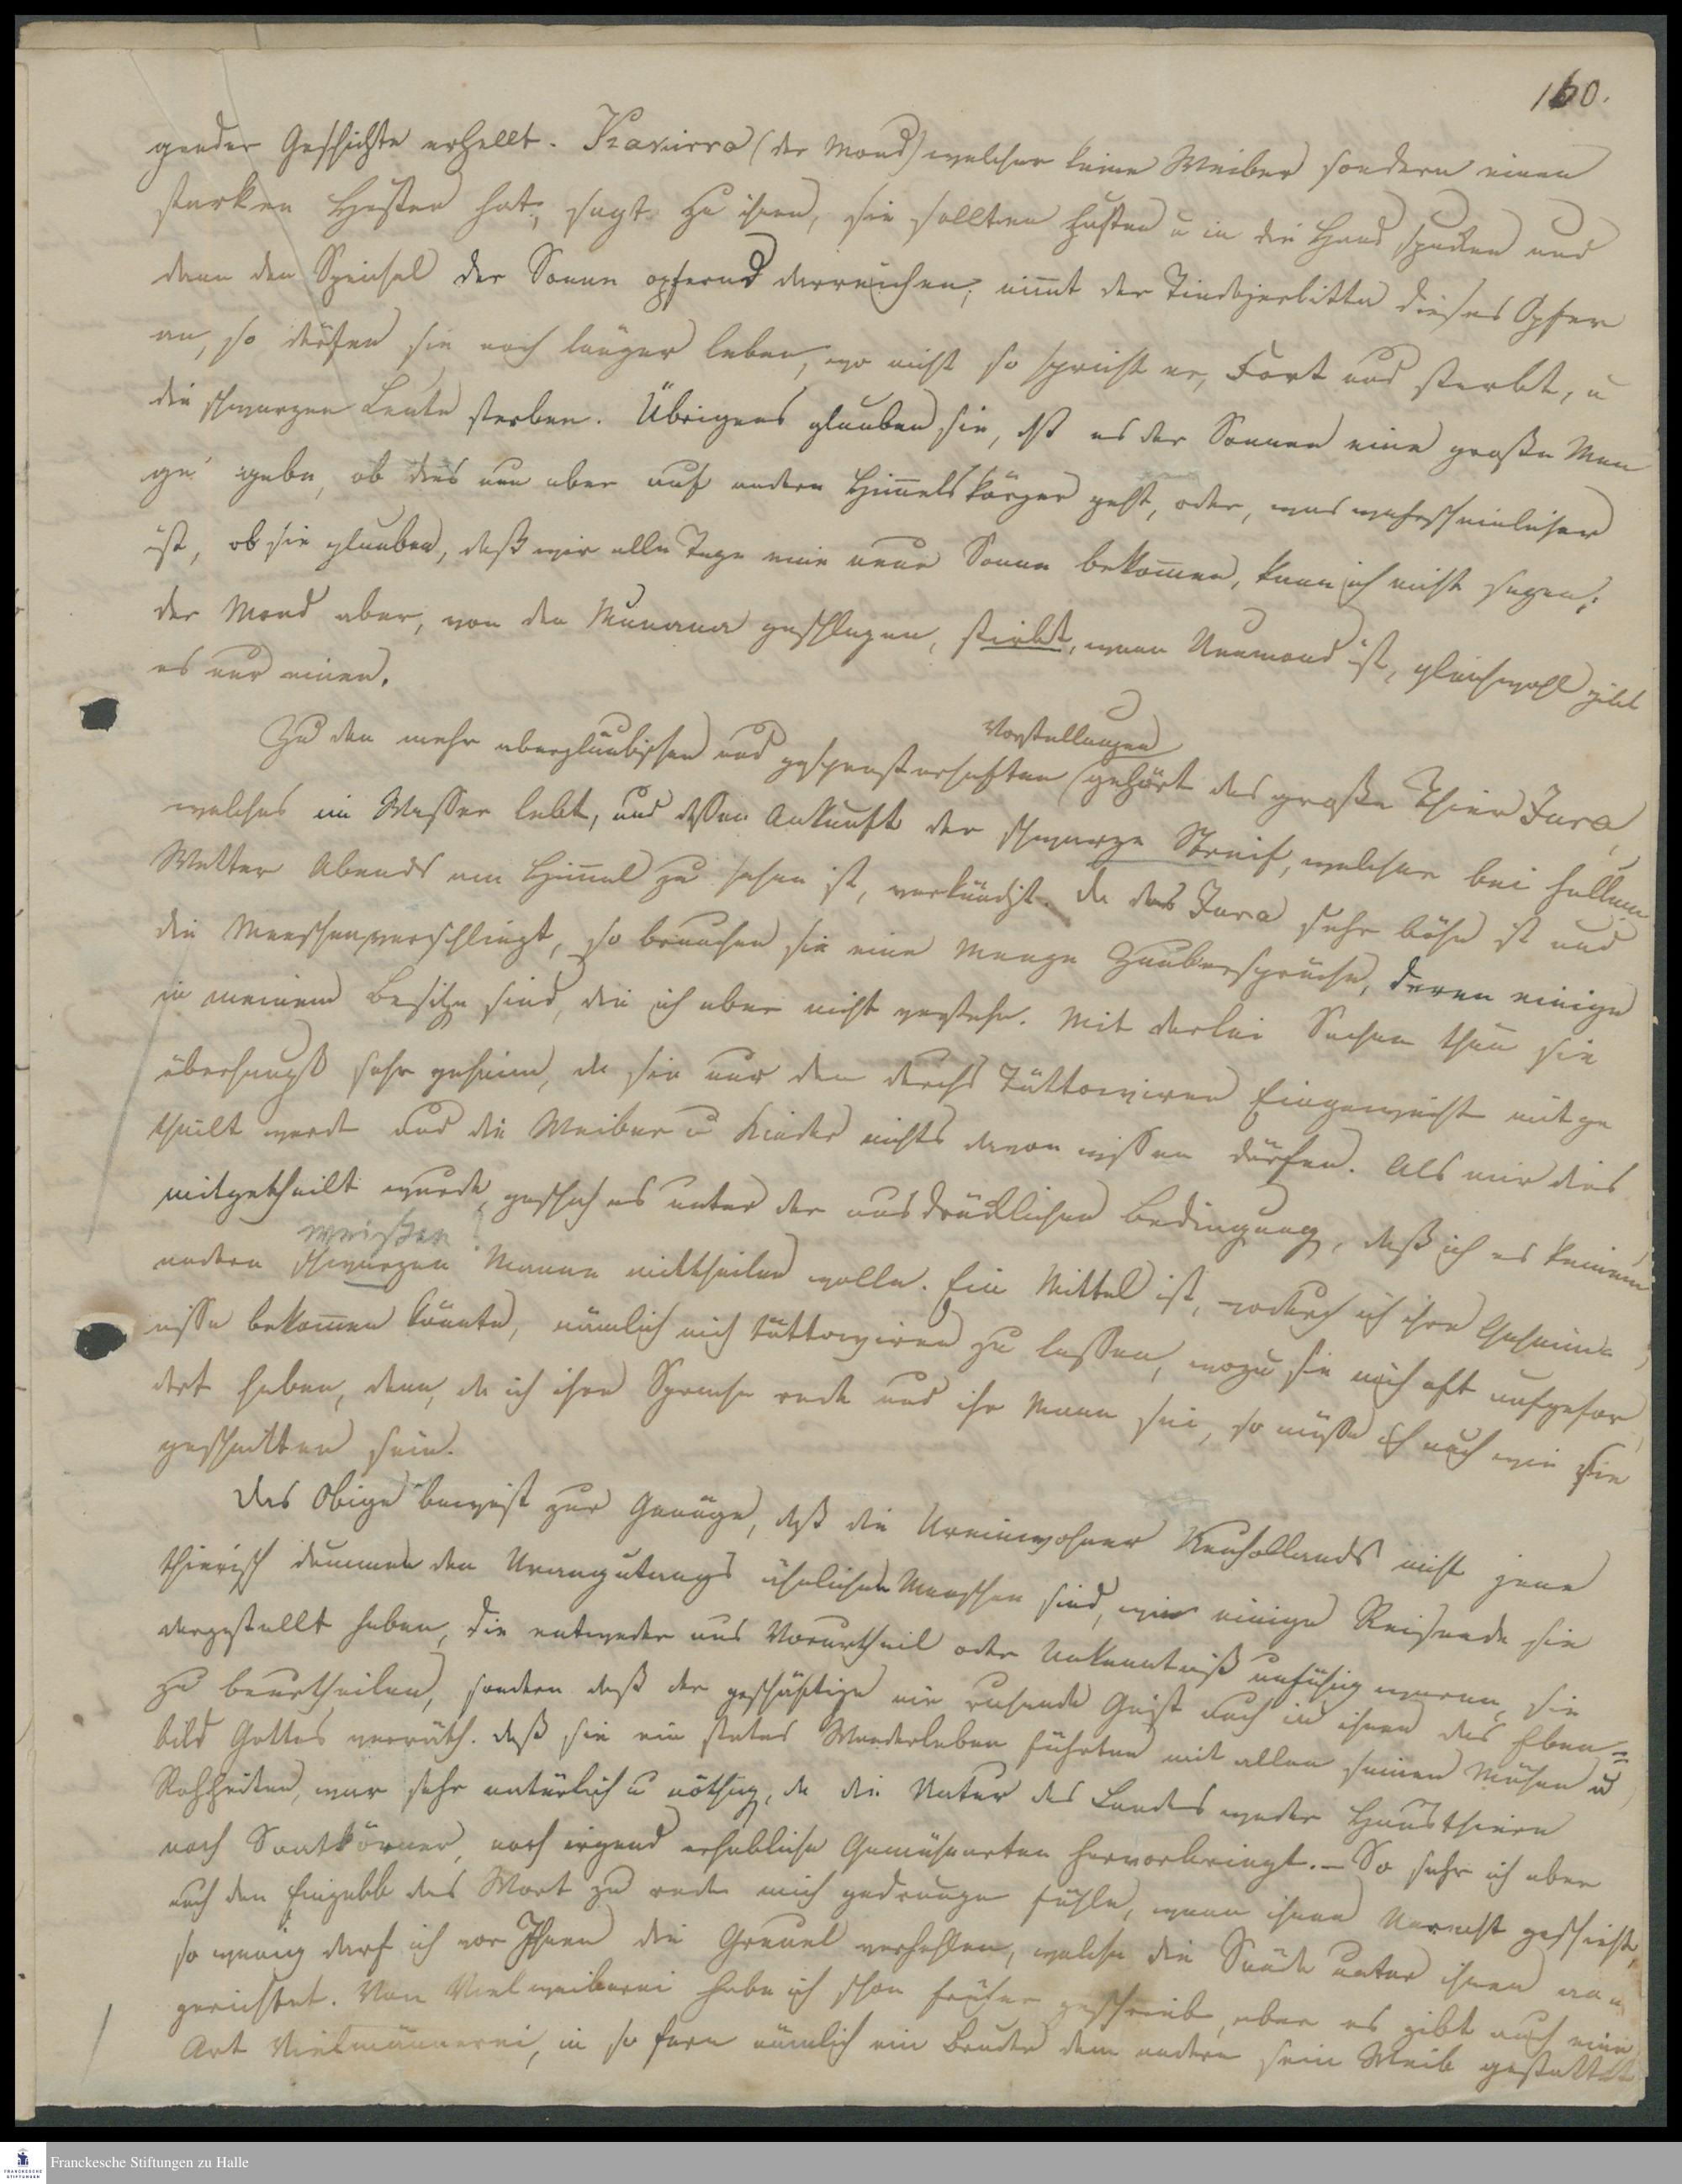 160.
gender Geschichte erhellt. Kakirra (der Mond) welcher keine Weiber sondern einen
starken Husten hat, sagt zu ihnen, sie sollten husten u in die Hand spucken und
dann den Speichel der Sonne opfernd darreichen; nimt der Tindojerbitta dieses Opfer
an, so dürfen sie noch länger leben, wo nicht so spricht er, Fort und sterbt, u
die schwarzen Leute sterben. Übrigens glauben sie, dß es der Sonnen eine große Men
ge gebe, ob dies nun aber auf andere Himelskörper geht, oder, was wahrscheinlicher
ist, ob sie glauben, daß wir alle Tage eine neue Sonne bekomen, kann ich nicht sagen;
der Mond aber, von den Munana geschlagen, stirbt, wenn Neumond ist, gleichwohl gibt
es nur einen.
Zu den mehr abergläubischen und gespensterhaften Vorstellungen gehört das große Thier Jura,
welches im Wasser lebt, und dessen Ankunft der schwarze Streif, welcher bei hellem
Wetter Abends am Himel zu sehen ist, verkündigt. Da das Jura sehr böse ist und
die Menschen verschlingt, so brauchen sie eine Menge Zaubersprüche, deren einige
in meinem Besitze sind, die ich aber nicht verstehe. Mit derlei Sachen thun sie
überhaupt sehr geheim, da sie nur den durchs Tättowiren Eingeweiht mitge
theilt werde und die Weiber u Kinder nichts davon wissen dürfen. Als mir dies
mitgetheilt wurde, geschah es unter der ausdrücklichen Bedingung, daß ich es keinem
weißen
andern schwarzen Manne mittheilen wolle. Ein Mittel ist, wodurch ich ihre Geheim-
nisse bekomen könnte, nämlich mich tättowiren zu lassen, wozu sie mich oft aufgefor
dert haben, denn, da ich ihre Sprache rede und ihr Mann sei, so müsse ich auch wie sie
geschnitten sein.
Das Obige beweist zur Genüge, daß die Ureinwohner Neuhollands nicht jene
thierisch dummen den Urangutangs ähnlichen Menschen sind, wie einige Reisende sie
dargestellt haben, die entweder aus Vorurtheil oder Unkenntniß unfähig waren, sie
zu beurtheilen, sondern daß der geschäftige nie ruhende Geist auch in ihnen das Eben=
bild Gottes verräth. Daß sie ein stetes Wanderleben führten mit allen seinen Mühen u
Rohheiten, war sehr natürlich u nöthig, da die Natur des Landes weder Hausthiere
noch Saatkörner, noch irgend erhebliche Gemüsearten hervorbringt. – So sehr ich aber
auch den Eingebb das Wort zu reden mich gedrungen fühle, wenn ihnen Unrecht geschieht,
so wenig darf ich vor Ihnen die Greuel verhehlen, welche die Sünde unter ihnen an=
gerichtet. Von Vielweiberei habe ich schon früher geschrieb, aber es gibt auch eine
Art Vielmännerei, in so fern nämlich ein Bruder dem andern sein Weib gestattet
Franckesche Stiftungen zu Halle